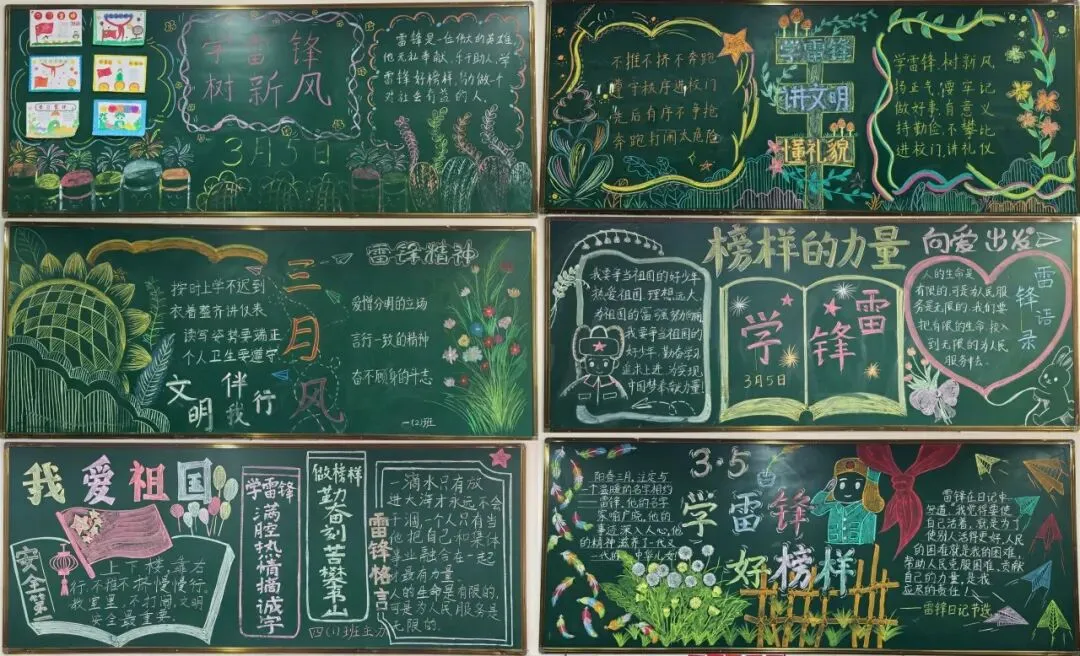 学雷锋
树新风
3月5日
雷锋是一位伟大的英雄,
他无私奉献、乐于助人,学
雷锋好榜样,
对社会有益的人。
不推不挤不奔跑
遵守秩序进校门
先后有序不争抢
奔跑打闹太危险
学雷锋
讲文明
懂礼貌
学雷锋,树新风
扬正气,要牢记
做好事,有意义
持勤俭,不攀比
进校门,讲礼仪
按时上学不迟到
衣着整齐讲仪表
读写姿势要端正
个人卫生要遵守
文明
伴我
行
三月风
雷锋精神
爱憎分明的立场
言行一致的精神
奋不顾身的斗志
一(2)班
榜样的力量
向爱出发
我要争当祖国的好少年
热爱祖国,理想远大,
为祖国的富强努力
我要争当祖国的
好少年,勤奋学习
追求上进,为实现
中国梦奉献力量!
学
3月5日
雷锋
人的生命是
有限的,可是为人民服
务是无限的,我们要
把有限的生命投入
到无限的为人民
服务中去。
雷锋语录
我爱祖国
安全第一
上下楼,靠右
行,不推不挤,慢慢行。
教室里,不打闹,文明
安全最重要.
学雷锋
满腔热情摘诚字
做榜样
勤奋刻苦攀书山
四(1)班
雷锋格言:
一滴水只有放
进大海才永远不会
干涸,一个人只有当
他把自己和集体
事业融合在一起
才最有力量
人的生命是有限的,
可是为人民服务是
无限的.
3·5
学雷锋
好榜样
阳春三月,注定与
一个温暖的名字相约
雷锋,他的名字
家喻户晓,他的
事迹深入人心,他
的精神滋养了一代又
一代的中华儿女
雷锋在日记中
自己活着,就是为了
使别人活得更好,人民
的困难就是我的困难,
帮助人民克服困难,贡献
自己的力量,是我
应尽的责任!
——雷锋日记节选